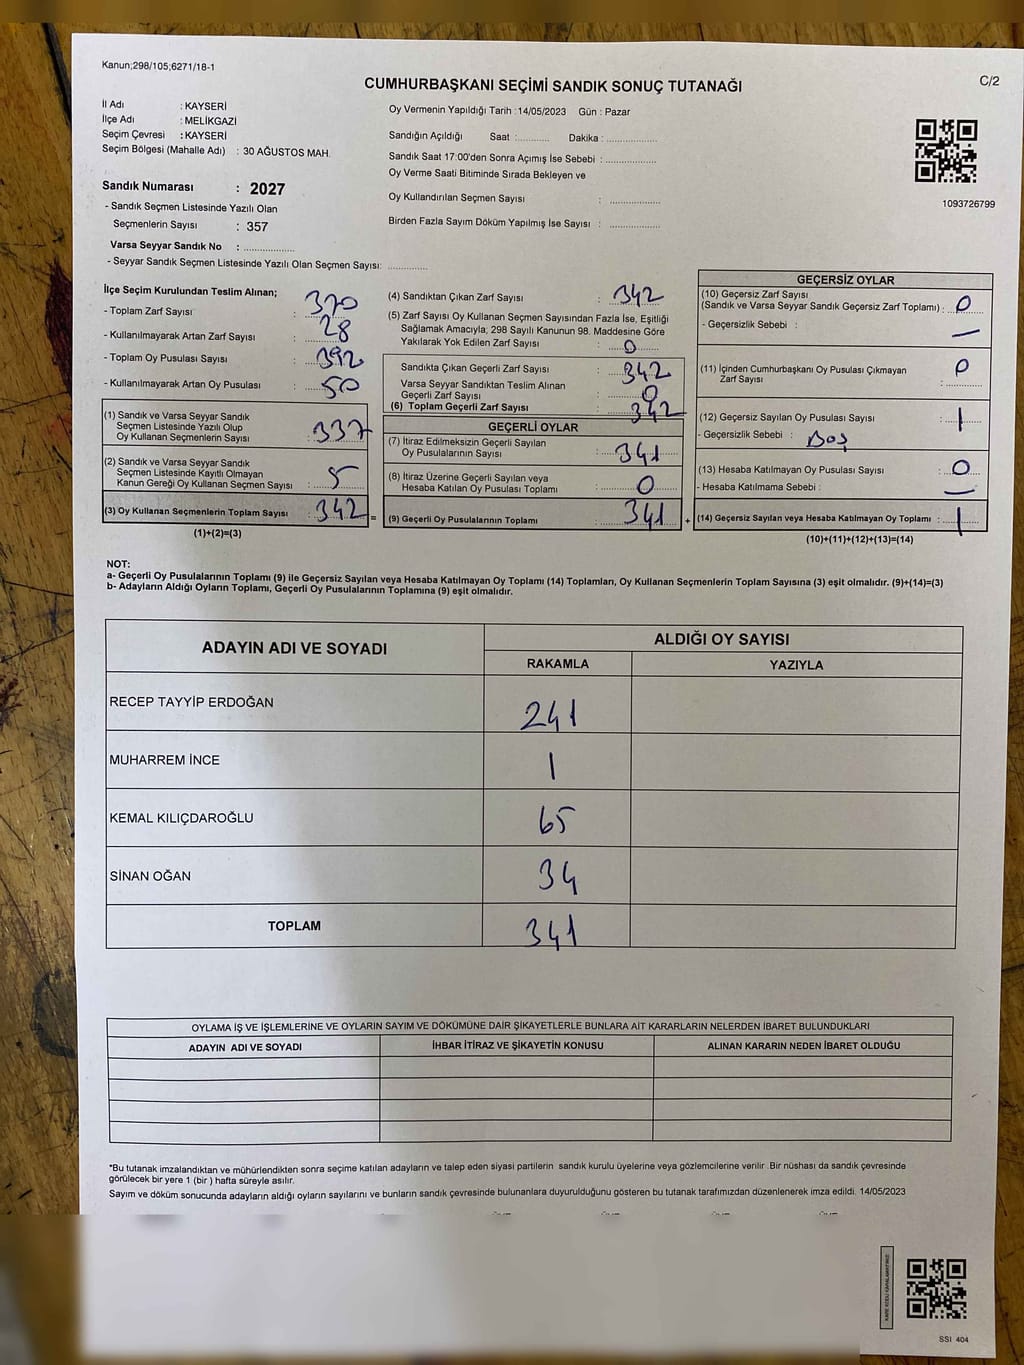 Kanun;298/105;6271/18-1
CUMHURBAŞKANI SEÇİMİ SANDIK SONUÇ TUTANAĞI
C/2
İl Adı : KAYSERİ
İlçe Adı : MELİKGAZİ
Seçim Çevresi : KAYSERİ
Seçim Bölgesi (Mahalle Adı) : 30 AĞUSTOS MAH.
Sandık Numarası : 2027
- Sandık Seçmen Listesinde Yazılı Olan
Seçmenlerin Sayısı : 357
Varsa Seyyar Sandık No : ..................
- Seyyar Sandık Seçmen Listesinde Yazılı Olan Seçmen Sayısı: .............
Oy Vermenin Yapıldığı Tarih : 14/05/2023 Gün : Pazar
Sandığın Açıldığı Saat :........... Dakika : ..................
Sandık Saat 17:00'den Sonra Açımış İse Sebebi : ..................
Oy Verme Saati Bitiminde Sırada Bekleyen ve
Oy Kullandırılan Seçmen Sayısı : ..................
Birden Fazla Sayım Döküm Yapılmış İse Sayısı : ..................
1093726799
İlçe Seçim Kurulundan Teslim Alınan;
- Toplam Zarf Sayısı : 370
- Kullanılmayarak Artan Zarf Sayısı : 28
- Toplam Oy Pusulası Sayısı : 392
- Kullanılmayarak Artan Oy Pusulası : 50
(1) Sandık ve Varsa Seyyar Sandık
Seçmen Listesinde Yazılı Olup
Oy Kullanan Seçmenlerin Sayısı : 337
(2) Sandık ve Varsa Seyyar Sandık
Seçmen Listesinde Kayıtlı Olmayan
Kanun Gereği Oy Kullanan Seçmen Sayısı : 5
(3) Oy Kullanan Seçmenlerin Toplam Sayısı : 342 =
(1)+(2)=(3)
(4) Sandıktan Çıkan Zarf Sayısı : 342
(5) Zarf Sayısı Oy Kullanan Seçmen Sayısından Fazla İse, Eşitliği
Sağlamak Amacıyla; 298 Sayılı Kanunun 98. Maddesine Göre
Yakılarak Yok Edilen Zarf Sayısı : 0
Sandıkta Çıkan Geçerli Zarf Sayısı : 342
Varsa Seyyar Sandıktan Teslim Alınan
Geçerli Zarf Sayısı : 0
(6) Toplam Geçerli Zarf Sayısı : 342
GEÇERLİ OYLAR
(7) İtiraz Edilmeksizin Geçerli Sayılan
Oy Pusulalarının Sayısı : 341
(8) İtiraz Üzerine Geçerli Sayılan veya
Hesaba Katılan Oy Pusulası Toplamı : 0
(9) Geçerli Oy Pusulalarının Toplamı : 341 +
GEÇERSİZ OYLAR
(10) Geçersiz Zarf Sayısı
(Sandık ve Varsa Seyyar Sandık Geçersiz Zarf Toplamı) : 0
- Geçersizlik Sebebi : —
(11) İçinden Cumhurbaşkanı Oy Pusulası Çıkmayan
Zarf Sayısı : 0
(12) Geçersiz Sayılan Oy Pusulası Sayısı : 1
- Geçersizlik Sebebi : Boş
(13) Hesaba Katılmayan Oy Pusulası Sayısı : 0
- Hesaba Katılmama Sebebi : —
(14) Geçersiz Sayılan veya Hesaba Katılmayan Oy Toplamı : 1
(10)+(11)+(12)+(13)=(14)
NOT:
a- Geçerli Oy Pusulalarının Toplamı (9) ile Geçersiz Sayılan veya Hesaba Katılmayan Oy Toplamı (14) Toplamları, Oy Kullanan Seçmenlerin Toplam Sayısına (3) eşit olmalıdır. (9)+(14)=(3)
b- Adayların Aldığı Oyların Toplamı, Geçerli Oy Pusulalarının Toplamına (9) eşit olmalıdır.
ADAYIN ADI VE SOYADI
ALDIĞI OY SAYISI
RAKAMLA YAZIYLA
RECEP TAYYİP ERDOĞAN 241
MUHARREM İNCE 1
KEMAL KILIÇDAROĞLU 65
SİNAN OĞAN 34
TOPLAM 341
OYLAMA İŞ VE İŞLEMLERİNE VE OYLARIN SAYIM VE DÖKÜMÜNE DAİR ŞİKAYETLERLE BUNLARA AİT KARARLARIN NELERDEN İBARET BULUNDUKLARI
ADAYIN ADI VE SOYADI İHBAR İTİRAZ VE ŞİKAYETİN KONUSU ALINAN KARARIN NEDEN İBARET OLDUĞU
*Bu tutanak imzalandıktan ve mühürlendikten sonra seçime katılan adayların ve talep eden siyasi partilerin sandık kurulu üyelerine veya gözlemcilerine verilir .Bir nüshası da sandık çevresinde
görülecek bir yere 1 (bir ) hafta süreyle asılır.
Sayım ve döküm sonucunda adayların aldığı oyların sayılarını ve bunların sandık çevresinde bulunanlara duyurulduğunu gösteren bu tutanak tarafımızdan düzenlenerek imza edildi. 14/05/2023
SSI 404